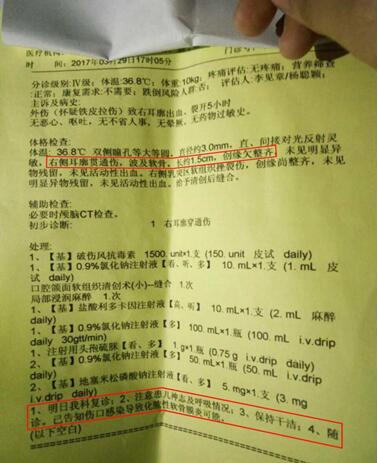 医疗机构:
时间: 2017年03月29日17时05分
门诊号:
分诊级别:IV级; 体温:36.8℃; 体重:10kg; 疼痛评估:无疼痛; 营养筛查
:正常; 康复需求:不需要; 跌倒风险人群:否; 评估人:李见章/杨聪颖;
主诉及病史:
外伤(怀疑铁皮拉伤)致右耳廓出血、裂开5小时
无恶心、呕吐, 无不省人事, 无昏厥, 无药物过敏史。
体格检查:
体温:36.8℃ 双侧瞳孔等大等圆, 直径约3.0mm, 直、间接对光反射灵
敏, 右侧耳廓贯通伤, 波及软骨, 长约1.5cm, 创缘欠整齐, 未见明显异
物残留, 未见活动性出血。右侧乳突区软组织挫裂伤, 创缘尚整齐, 未见
明显异物残留, 未见活动性出血。给予清创后缝合。
辅助检查:
必要时颅脑CT检查。
初步诊断: 1 右耳廓穿通伤
处理:
1、【基】破伤风抗毒素 1500. unit*1.支 (150. unit 皮试 daily)
1、【基】0.9%氯化钠注射液【看、听、多】 10. mL*1.支 (1. mL 皮
试 daily)
口腔颌面软组织清创术(小)--缝合 1.次
局部浸润麻醉 1.次
1、【基】盐酸利多卡因注射液【高、听】 10. mL*1.支 (2. mL 麻醉
daily)
1、【基】0.9%氯化钠注射液【多】 100. mL*1.瓶 (100. mL i.v.drip
daily 30gtt/min)
1、注射用头孢硫脒【看、多】 1.g*1.瓶 (0.75 g i.v.drip daily)
2、【基】0.9%氯化钠注射液【多】 50. mL*1.瓶 (50. mL i.v.drip
daily)
2、【基】地塞米松磷酸钠注射液【看、多】 5. mg*1.支 (3. mg
i.v.drip daily)
1、明日我科复诊; 2、注意患儿神志及呼吸情况; 3、保持干洁; 4、随
诊。已告知伤口感染导致化脓性软骨膜炎可能。
(以下空白)